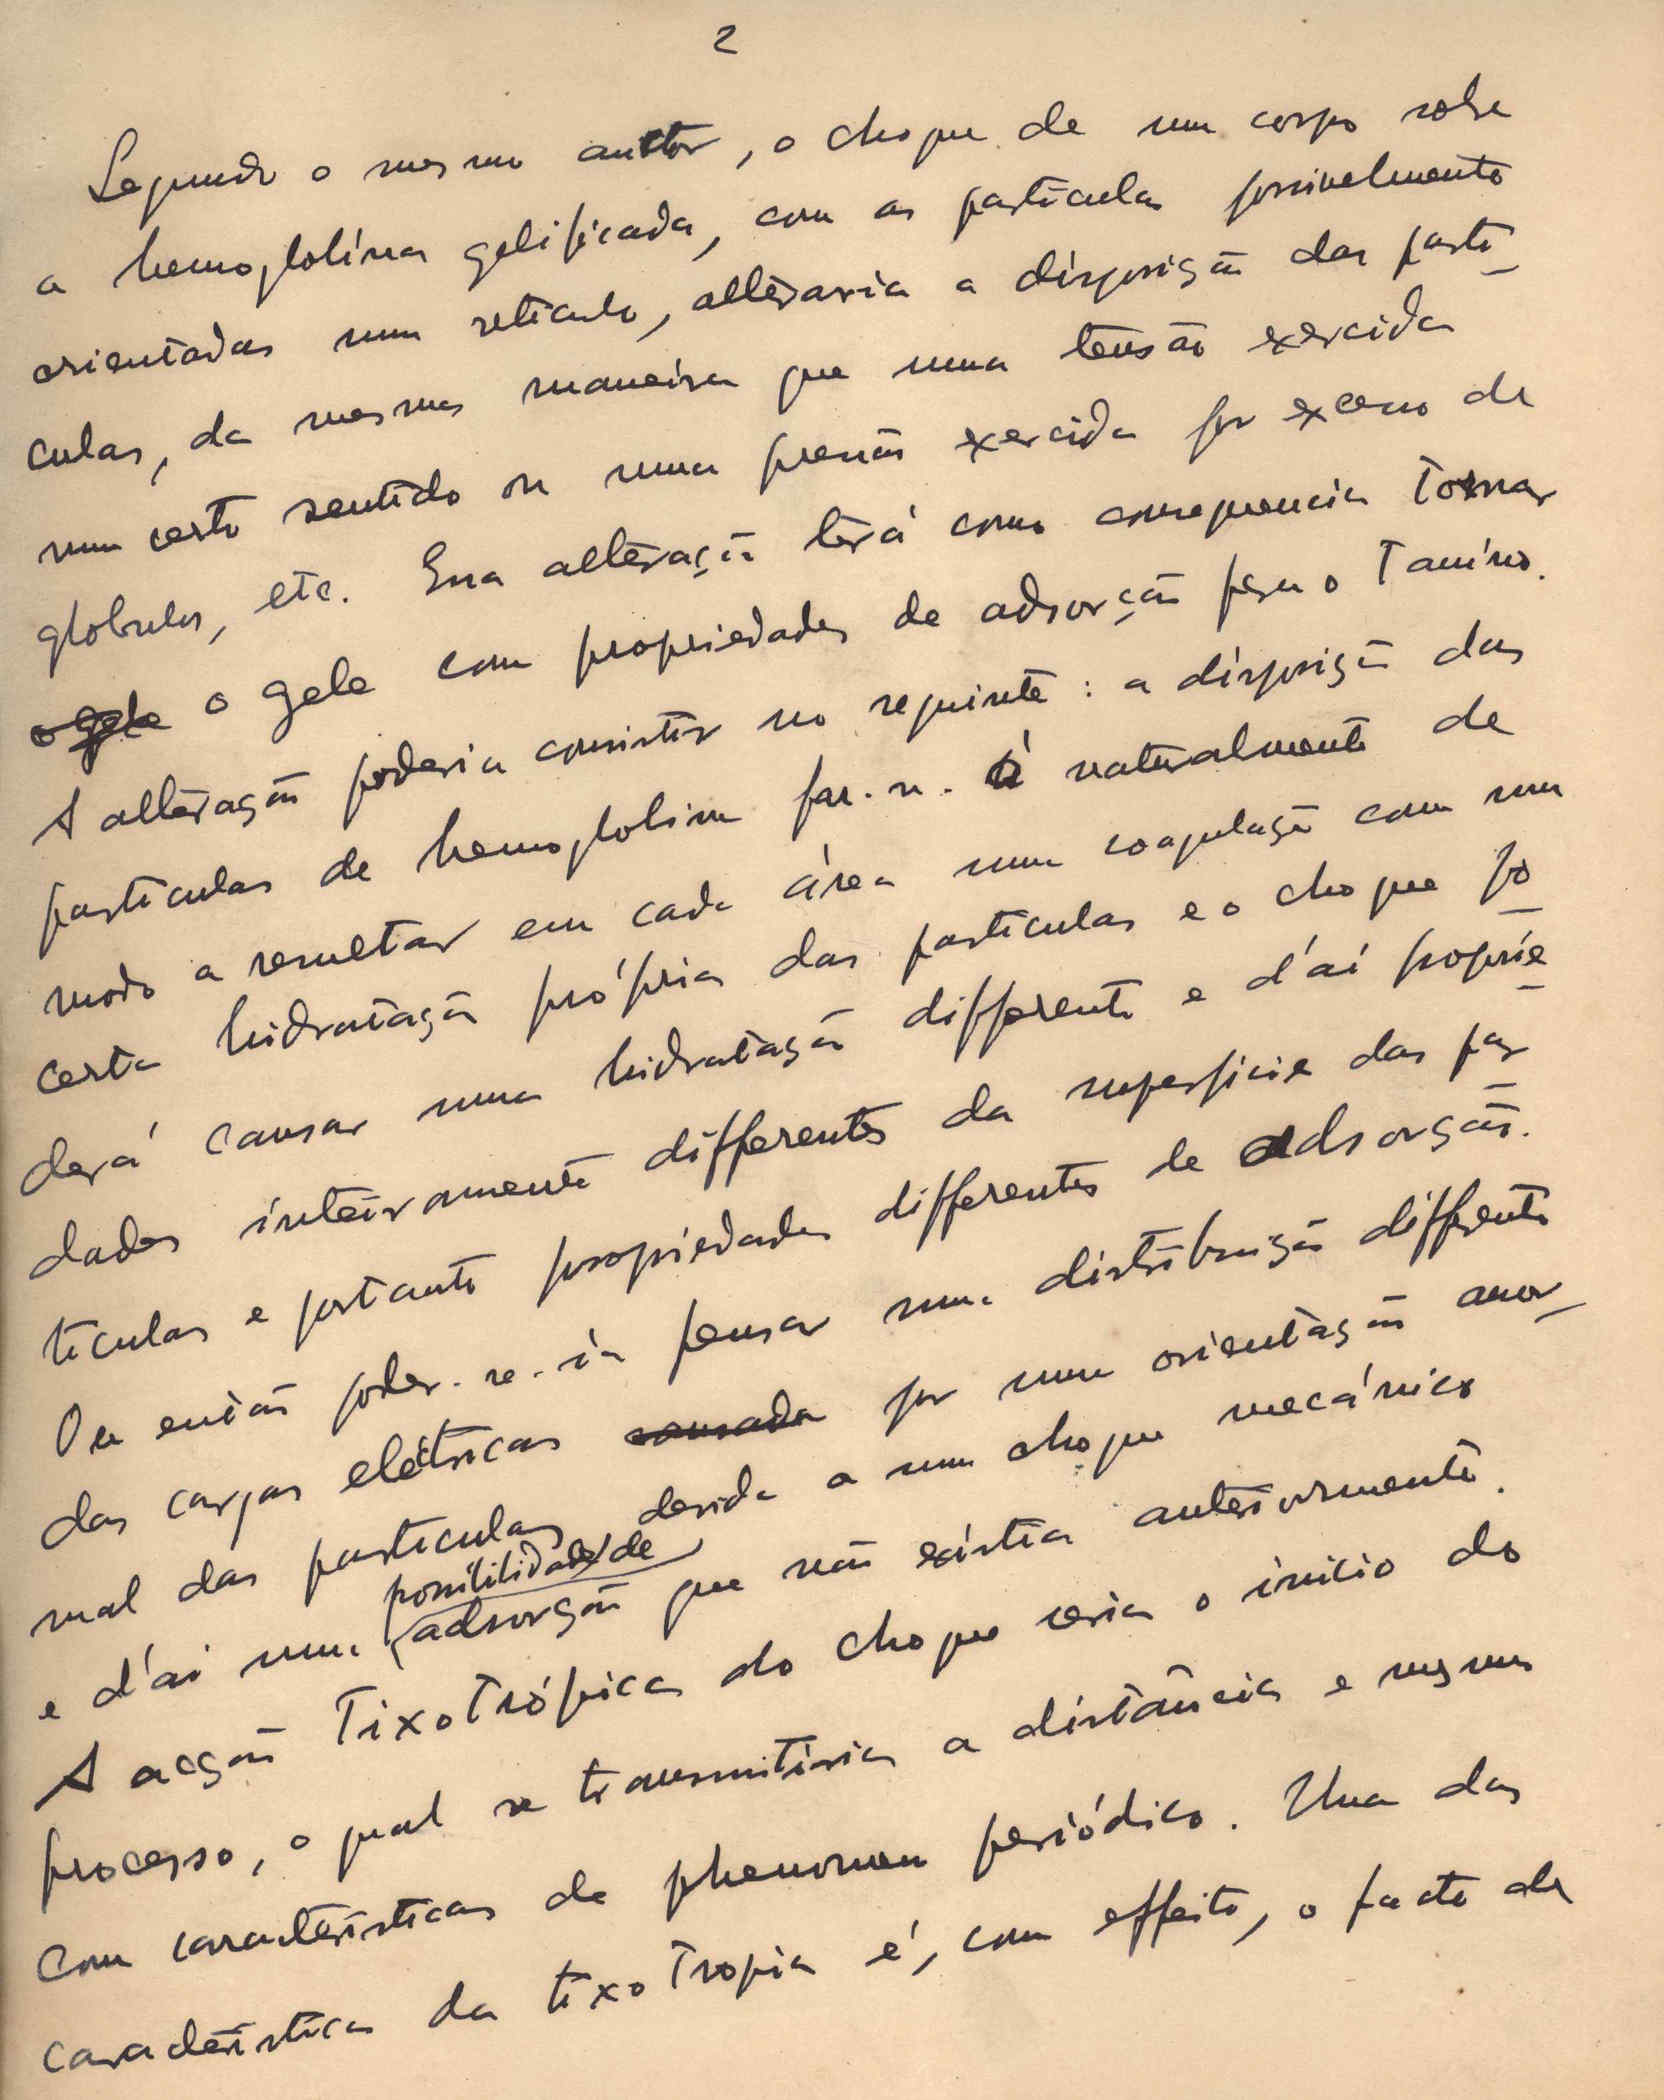 2
Segundo o mesmo auctor, o choque de um corpo sobre
a hemoglobina gelificada, com as particulas possivelmente
orientadas num reticulo, alteraria a disposição das parti-
culas, da mesma maneira que uma tensão exercida
num certo sentido ou uma pressão exercida por excesso de
globulos, etc. Essa alteração terá como consequencia tornar
o gele o gele com propriedades de adsorção para o tanino.
A alteração poderia consistir no seguinte: a disposição das
particulas de hemoglobina far-se-á naturalmente de
modo a resultar em cada área uma coagulação com uma
certa hidratação própria das particulas e o choque po-
derá causar uma hidratação differente e d'aí proprie-
dades inteiramente differentes da superficie das par-
ticulas e portanto propriedades differentes de adsorção.
Ou então poder-se-ia pensar numa distribuição differente
das cargas elétricas causada por uma orientação anor-
mal das particulas devida a um choque mecánico
possibilidade de
e d'aí uma adsorção que não existia anteriormente.
A acção tixotrópica do choque seria o inicio do
processo, o qual se transmitiria a distância e mesmo
com caracteristicas de phenomeno periódico. Uma das
caracteristicas da tixotropia é, com effeito, o facto de